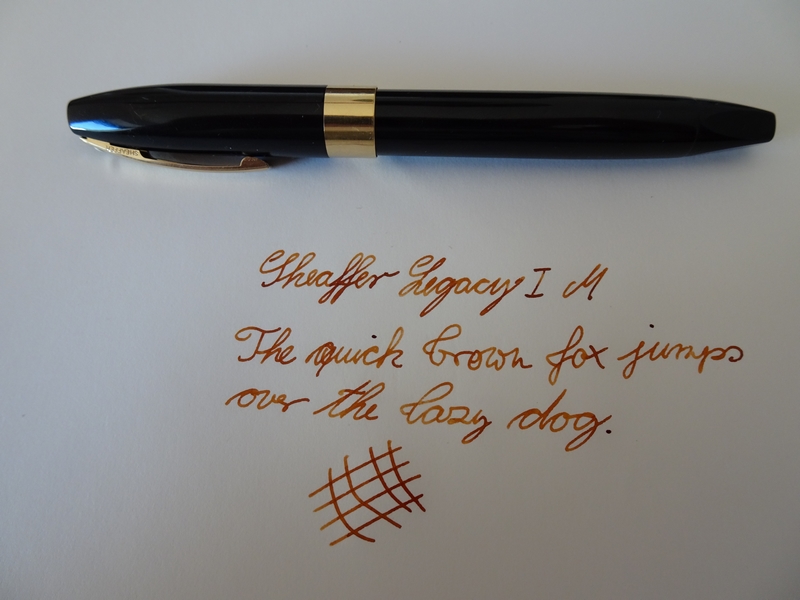 SHEAFFER
Sheaffer Legacy I M
The quick brown fox jumps
over the lazy dog.